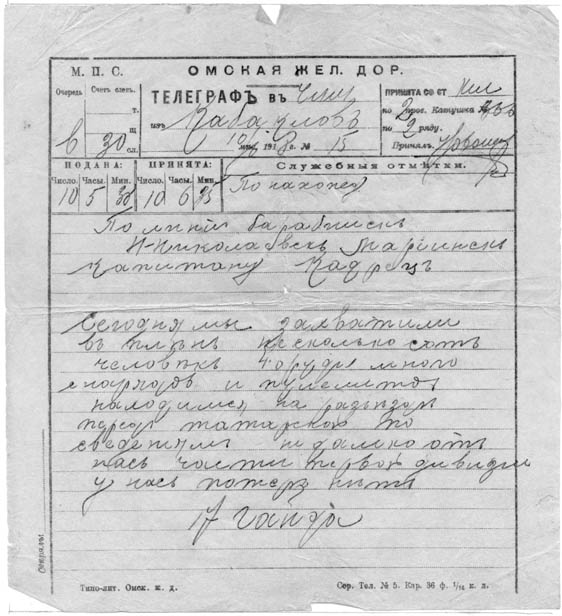 М. П. С.
ОМСКАЯ ЖЕЛ. ДОР.
Очередь
Счетъ слвъ.
т.
щ.
сл.
в 30
ТЕЛЕГРАФЪ въ
изъ
191 8 г. № 15
ПРИНЯТА СО СТ
по 2 прос. Катушка
по 2 ряду.
Принялъ
ПОДАНА:
ПРИНЯТА:
Служебныя отмѣтки.
Число. Часы. Мин.
Число. Часы. Мин.
10 5 30
10 6 35
По нахожд
По линiи Барабинскъ
Н-Николаевскъ Марiинскъ
Капитану Кадлецъ
Сегодня мы захватили
въ плѣнъ несколько сотъ
человѣкъ 4 орудiя много
снарядовъ и пулеметовъ
находимся на разъездѣ
перед татарской по
сведенiямъ не далеко отъ
насъ части первой дивизiи
у насъ потерь нѣтъ
Гайда
Типо-лит. Омск. ж. д.
Сер. Тел. № 5. Кар. 36 ф. 1/16 к. л.